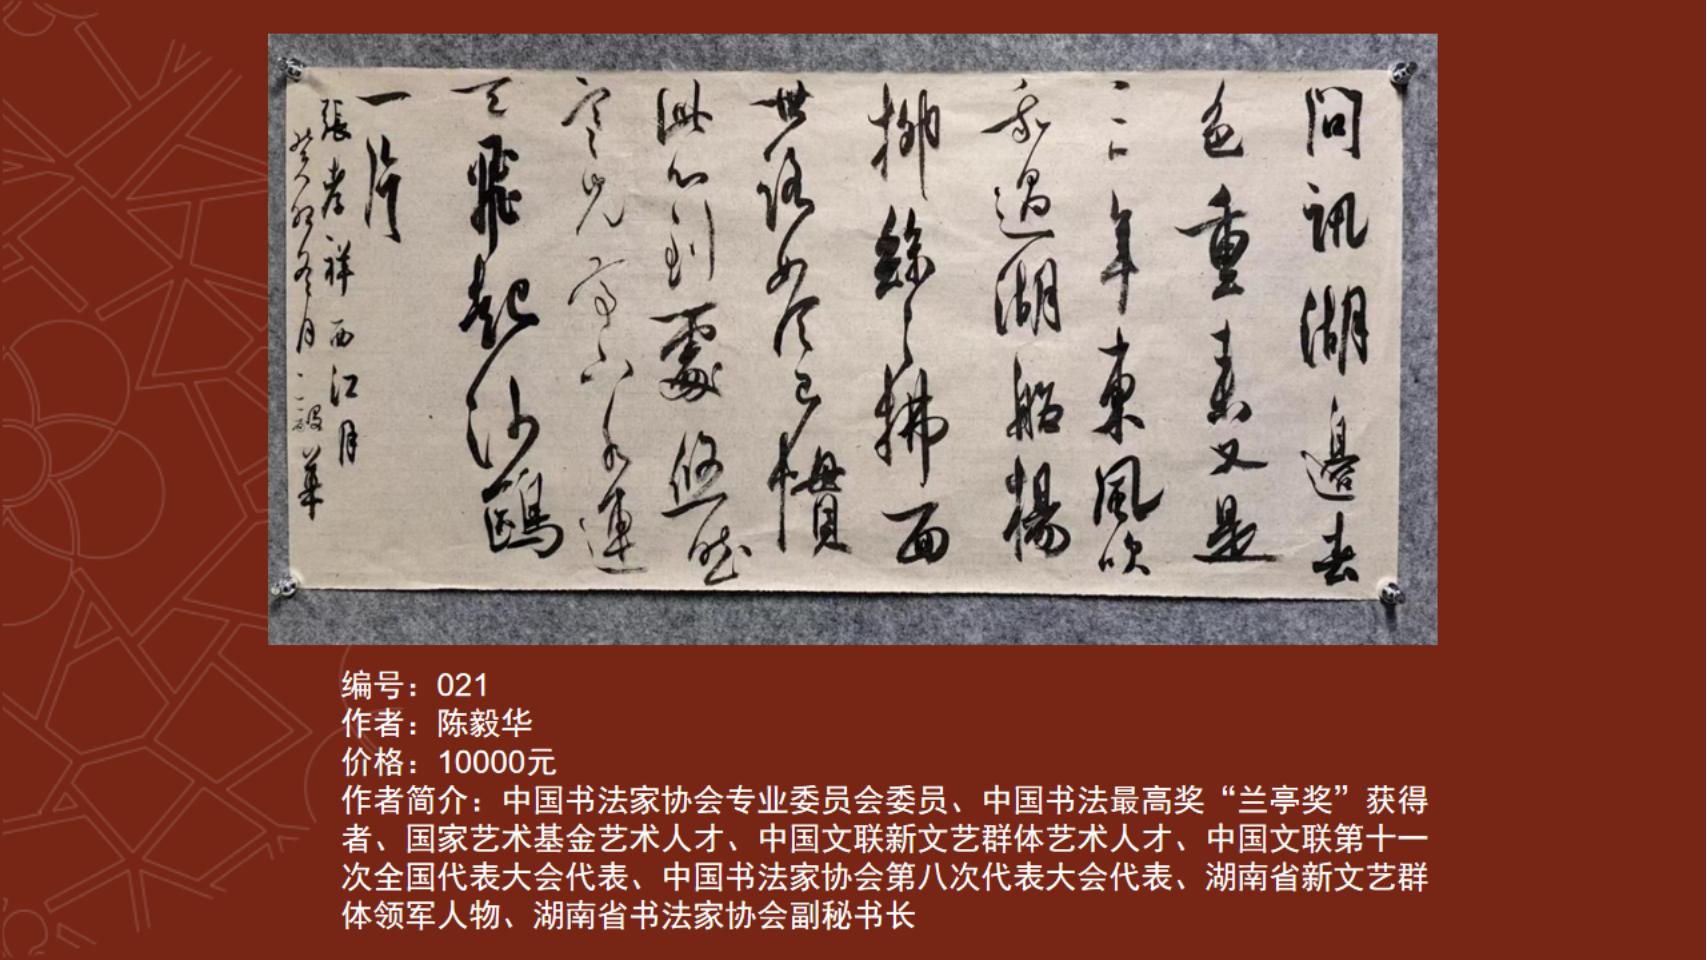 問訊湖邊春
色重来又是
三年東風吹
我過湖船楊
柳絲〻拂面
世路如今已慣
此心到處悠然
寒光亭下水連
天飛起沙鷗
一片
張孝祥西江月
癸卯冬月毅華
编号：021
作者：陈毅华
价格：10000元
作者简介：中国书法家协会专业委员会委员、中国书法最高奖“兰亭奖”获得
者、国家艺术基金艺术人才、中国文联新文艺群体艺术人才、中国文联第十一
次全国代表大会代表、中国书法家协会第八次代表大会代表、湖南省新文艺群
体领军人物、湖南省书法家协会副秘书长